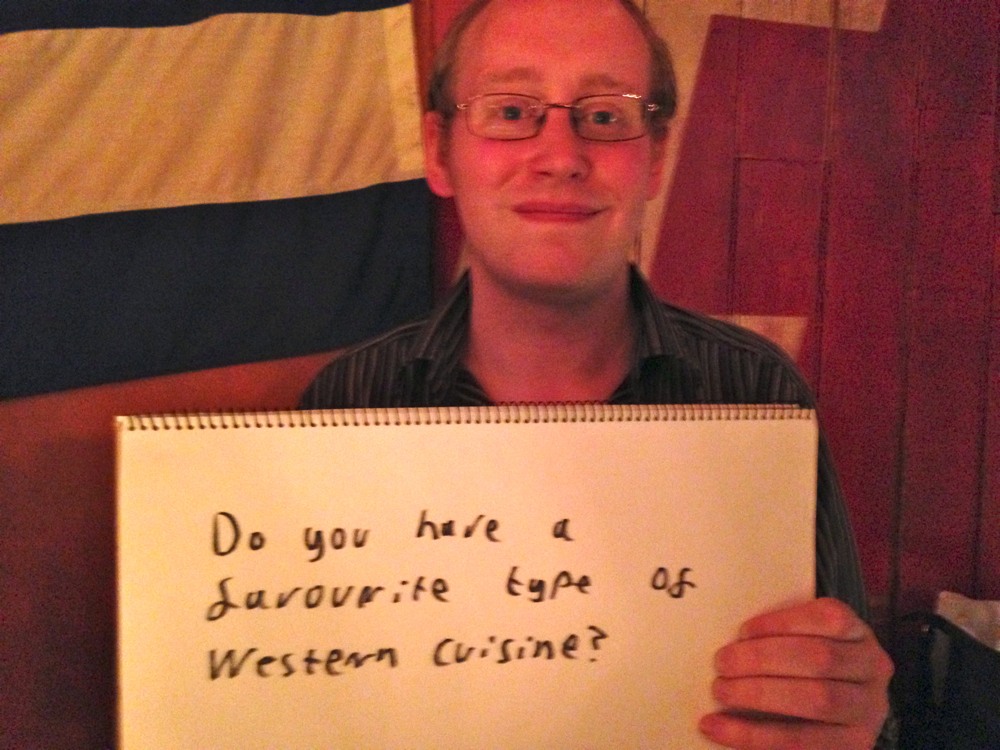 Do you have a
favourite type of
Western cuisine?